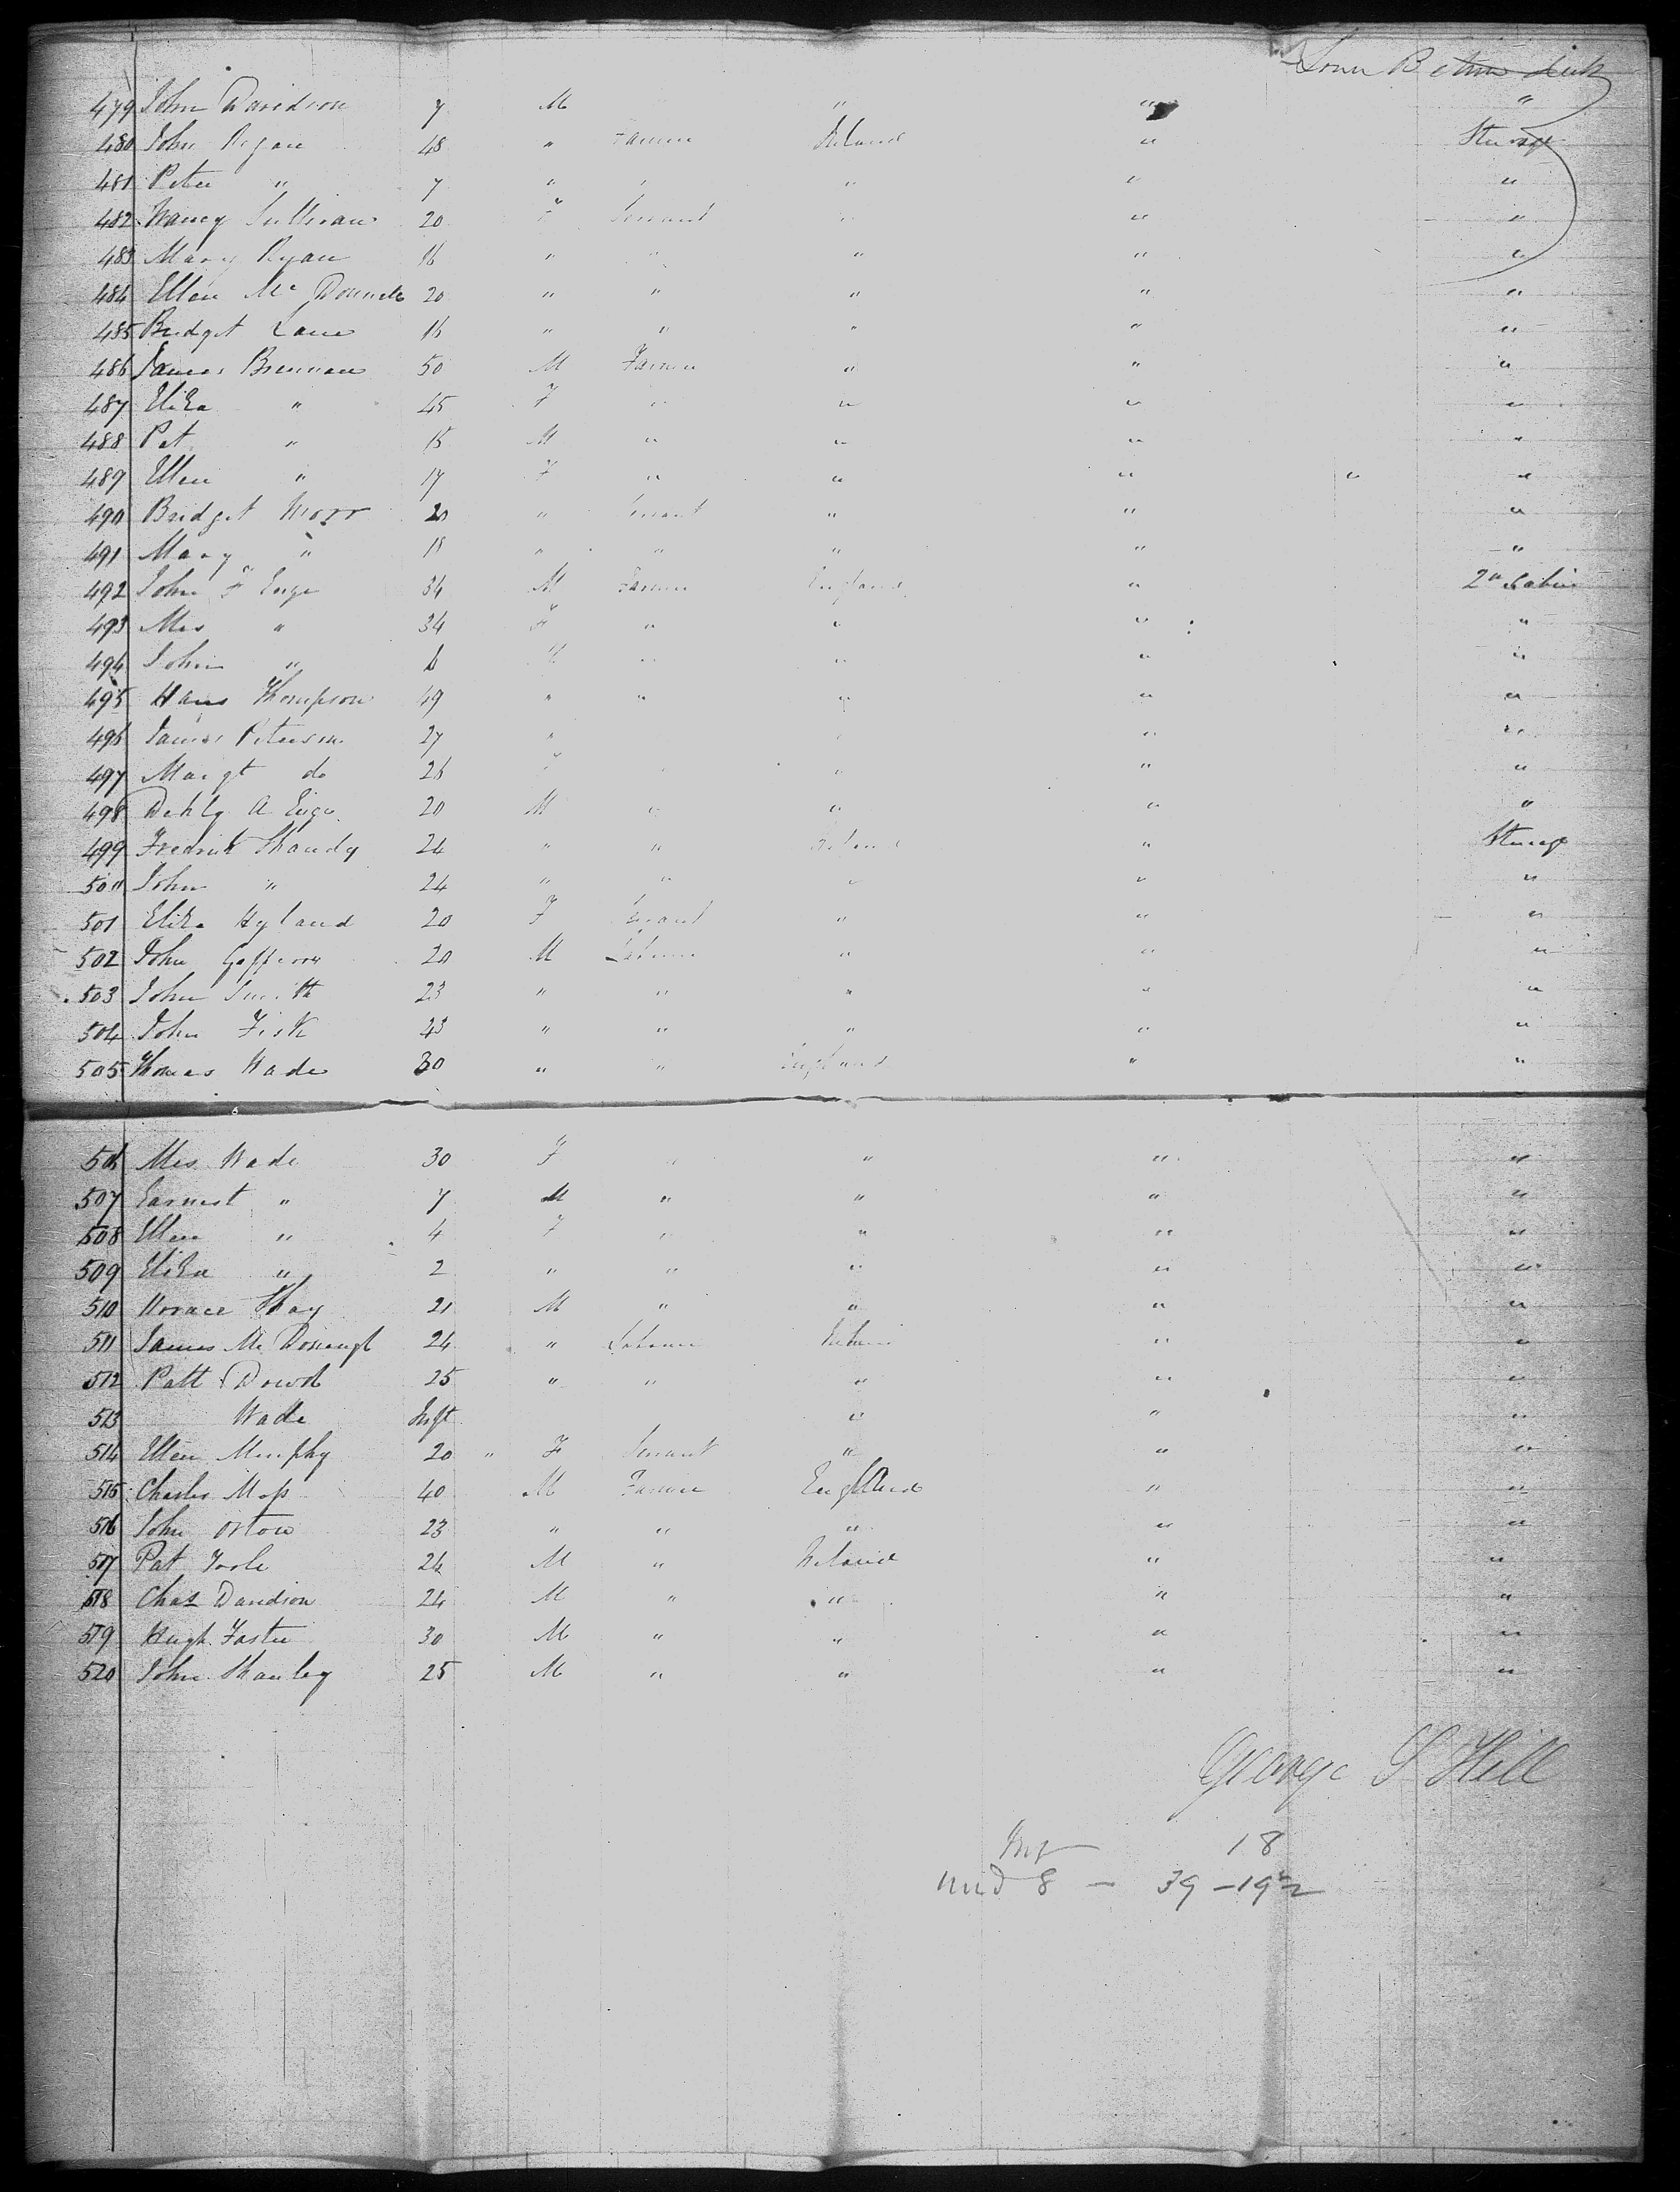 Lower Between deck
479 John Davidson 7 M " " "
480 John Regan 48 " Farmer Ireland " Steerage
481 Peter " 7 " " " " "
482 Nancy Sullivan 20 F Servant " " "
483 Mary Ryan 16 " " " " "
484 Ellen Mc Donnell 20 " " " " "
485 Bridget Lane 16 " " " " "
486 James Brennan 50 M Farmer " " "
487 Eliza " 45 F " " " "
488 Pat " 15 M " " " "
489 Ellen " 17 F " " " " "
490 Bridget Morr 20 " Servant " " "
491 Mary " 18 " " " " "
492 John F Enge 34 M Farmer England " 2d Cabin
493 Mrs " 34 F " " " "
494 John " 6 M " " " "
495 Hans Thompson 49 " " " " "
496 James Peterson 27 " " " "
497 Margt do 26 F " " " "
498 A Enge 20 M " " " "
499 Fredrick Shandy 24 " " Ireland " Steerage
500 John " 24 " " " " "
501 Eliza Hyland 20 F Servant " " "
502 John 20 M Labourer " " "
503 John Smith 23 " " " " "
504 John Fisk 23 " " " " "
505 Thomas Wade 30 " " England " "
506 Mrs Wade 30 F " " " "
507 Earnest " 7 M " " " "
508 Ellen " 4 F " " " "
509 Eliza " 2 " " " " "
510 Horace Shay 21 M " " " "
511 James Mc Donaugh 24 " Labourer Ireland " "
512 Patt Dowd 25 " " " " "
513 Wade Inft " " "
514 Ellen Murphy 20 " F Servant " " "
515 Charles Moss 40 M Farmer England " "
516 John Orton 23 " " " " "
517 Pat Toole 24 M " Ireland " "
518 Chas Davidson 24 M " " " "
519 Hugh Foster 30 M " " " "
520 John Stanley 25 M " " " "
George S Hill
Inf 18
und 8 - 39 - 19½